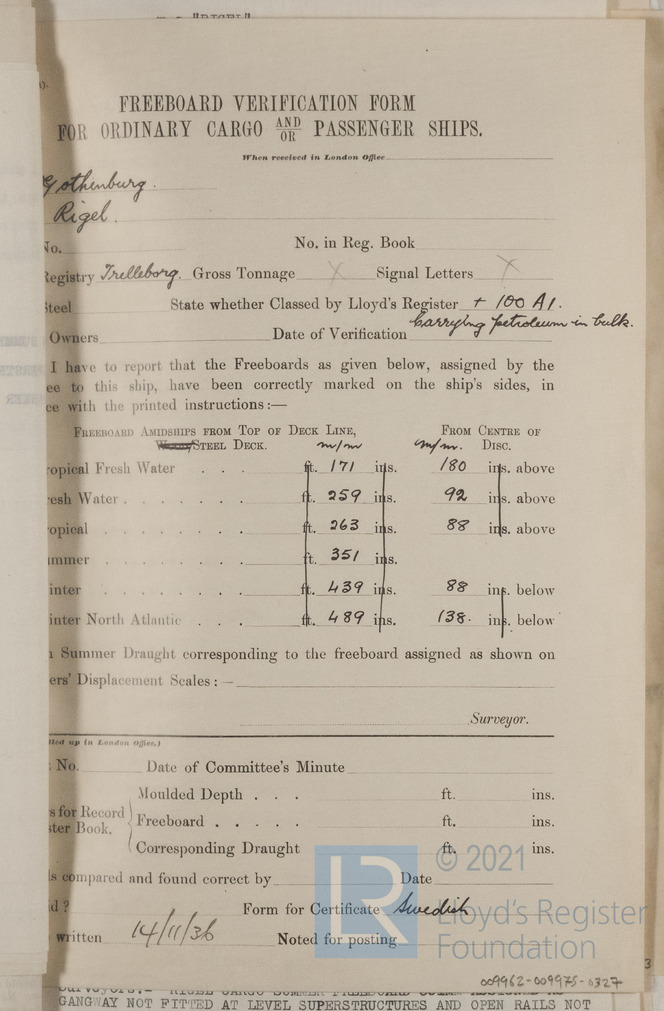 "RIGEL"
FREEBOARD VERIFICATION FORM
FOR ORDINARY CARGO AND OR PASSENGER SHIPS.
When received in London Office
Gothenburg.
Rigel.
No. No. in Reg. Book
Registry Trelleborg. Gross Tonnage X Signal Letters X
Steel State whether Classed by Lloyd's Register + 100 A1.
Carrying petroleum in bulk.
Owners Date of Verification
I have to report that the Freeboards as given below, assigned by the
ee to this ship, have been correctly marked on the ship's sides, in
ce with the printed instructions:—
FREEBOARD AMIDSHIPS FROM TOP OF DECK LINE, FROM CENTRE OF
STEEL DECK. m/m m/m. DISC.
ropical Fresh Water . . . ft. 171 ins. 180 ins. above
resh Water . . . . . . . ft. 259 ins. 92 ins. above
ropical . . . . . . . . ft. 263 ins. 88 ins. above
ummer . . . . . . . ft. 351 ins.
inter . . . . . . . ft. 439 ins. 88 ins. below
inter North Atlantic . . . ft. 489 ins. 138. ins. below
n Summer Draught corresponding to the freeboard assigned as shown on
ers' Displacement Scales:—
Surveyor.
lled up in London Office.)
No. Date of Committee's Minute
Moulded Depth . . . ft. ins.
s for Record
ster Book.
Freeboard . . . . . ft. ins.
Corresponding Draught ft. ins.
ls compared and found correct by Date
d? Form for Certificate Swedish
written 14/11/36 Noted for posting
LR © 2021
Lloyd's Register
Foundation
3
009962-009975-0327
GANGWAY NOT FITTED AT LEVEL SUPERSTRUCTURES AND OPEN RAILS NOT